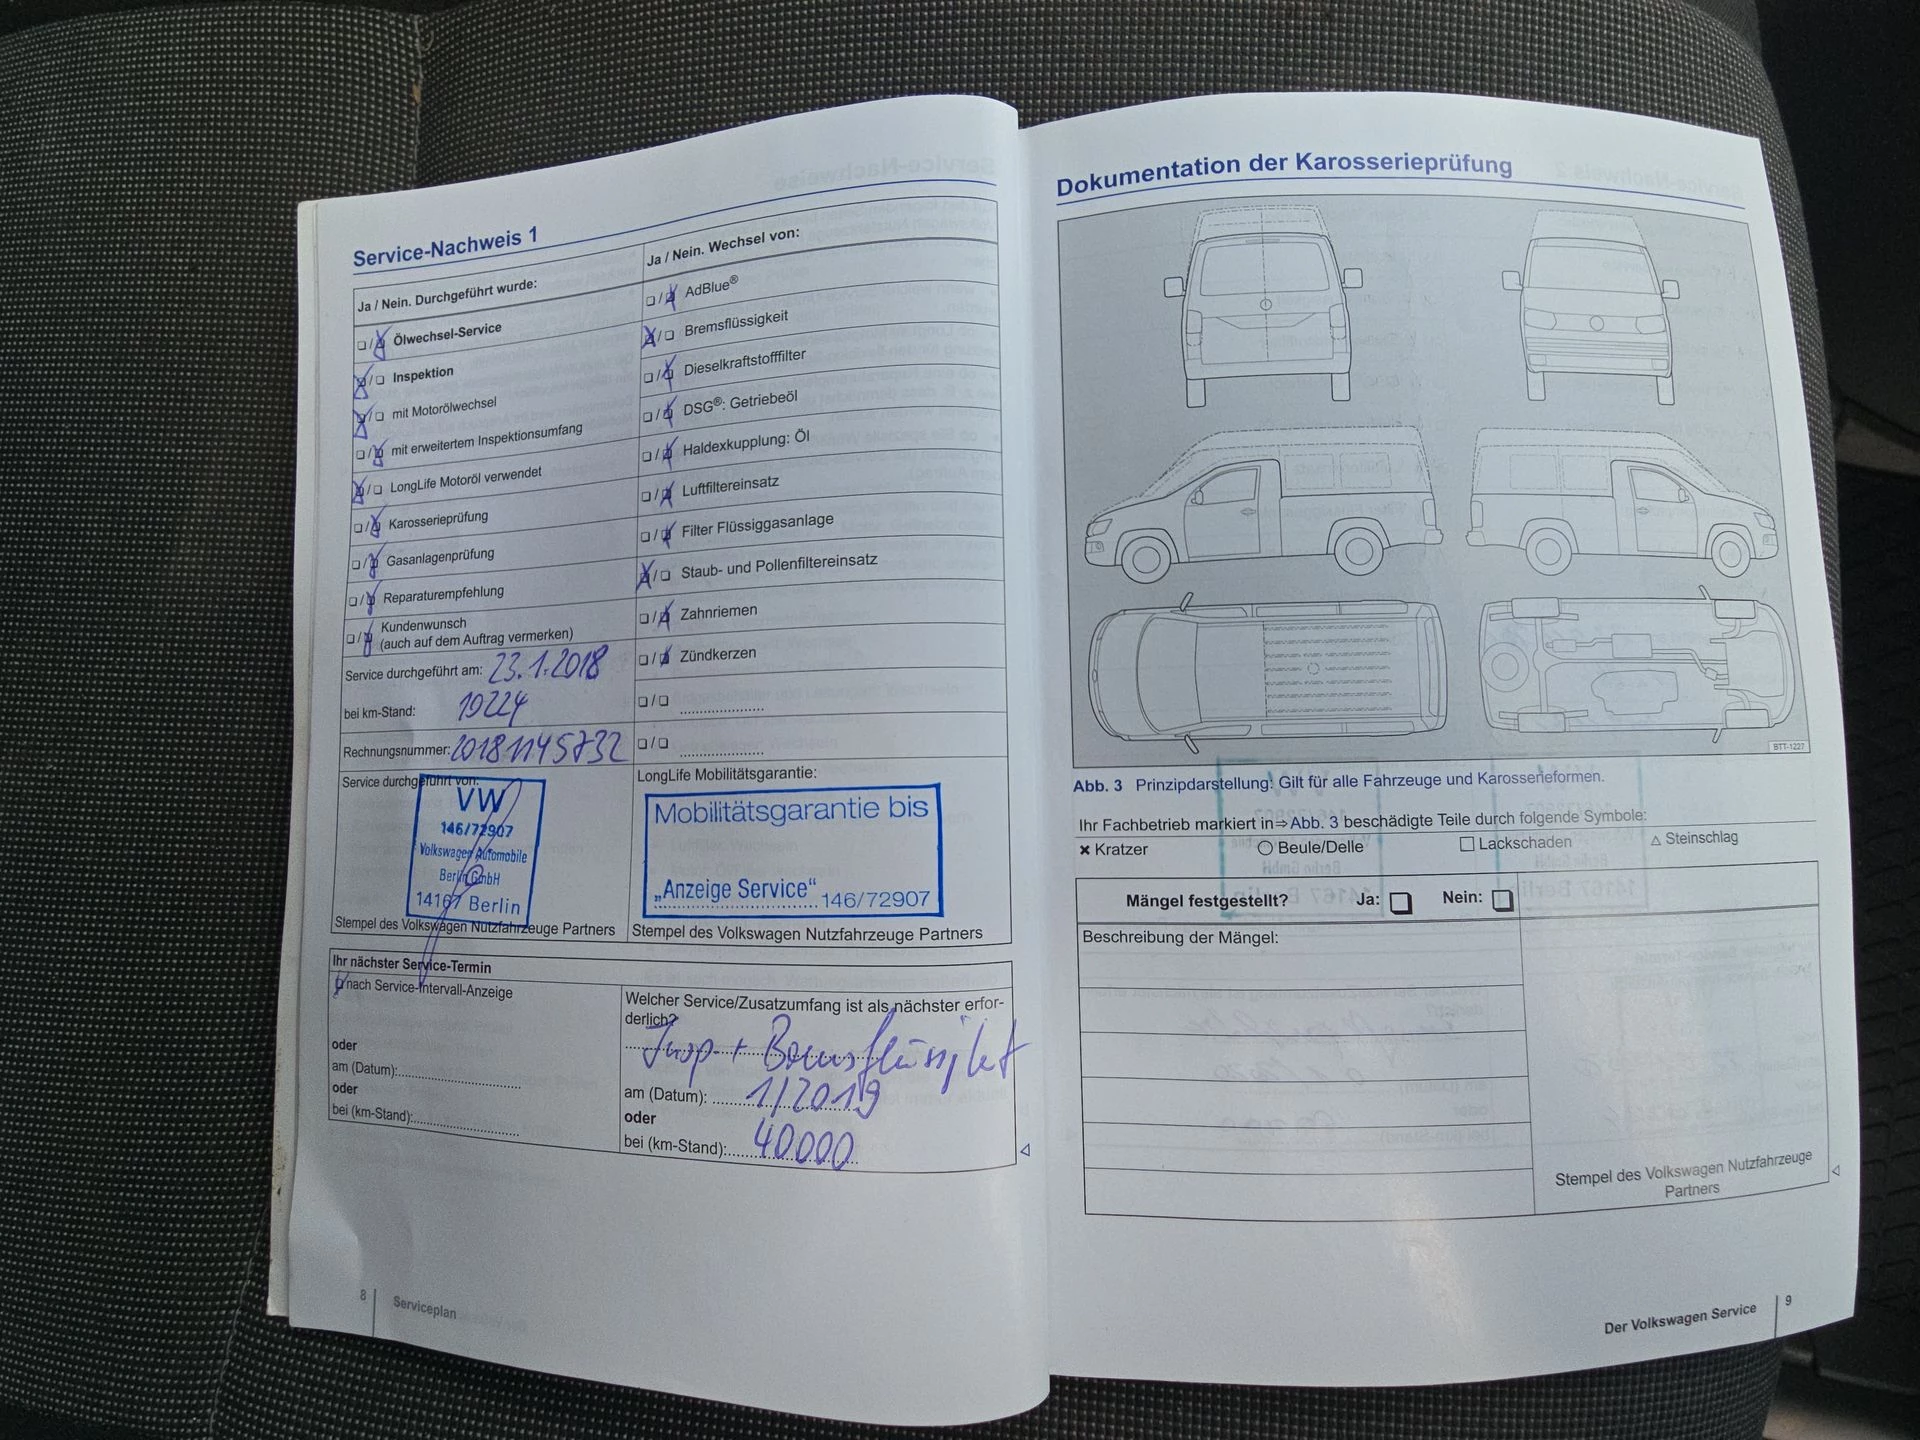 Service-Nachweis 1
Ja / Nein. Durchgeführt wurde:
Ölwechsel-Service
Inspektion
mit Motorölwechsel
mit erweitertem Inspektionsumfang
LongLife Motoröl verwendet
Karosserieprüfung
Gasanlagenprüfung
Reparaturempfehlung
Kundenwunsch
(auch auf dem Auftrag vermerken)
Service durchgeführt am: 23.1.2018
bei km-Stand: 19224
Rechnungsnummer: 20181145732
Ja / Nein. Wechsel von:
AdBlue®
Bremsflüssigkeit
Dieselkraftstofffilter
DSG®: Getriebeöl
Haldexkupplung: Öl
Luftfiltereinsatz
Filter Flüssiggasanlage
Staub- und Pollenfiltereinsatz
Zahnriemen
Zündkerzen
Service durchgeführt von:
VW
146/72907
Volkswagen Automobile
Berlin GmbH
14167 Berlin
Stempel des Volkswagen Nutzfahrzeuge Partners
LongLife Mobilitätsgarantie:
Mobilitätsgarantie bis
„Anzeige Service“ 146/72907
Stempel des Volkswagen Nutzfahrzeuge Partners
Ihr nächster Service-Termin
nach Service-Intervall-Anzeige
oder
am (Datum):
oder
bei (km-Stand):
Welcher Service/Zusatzumfang ist als nächster erfor-
derlich?
Insp + Bremsflüssigkeit
am (Datum): 1/2019
oder
bei (km-Stand): 40000
8
Serviceplan
Dokumentation der Karosserieprüfung
BTT-1227
Abb. 3 Prinzipdarstellung: Gilt für alle Fahrzeuge und Karosserieformen.
Ihr Fachbetrieb markiert in⇒Abb. 3 beschädigte Teile durch folgende Symbole:
Kratzer Beule/Delle Lackschaden Steinschlag
Mängel festgestellt? Ja: Nein:
Beschreibung der Mängel:
Stempel des Volkswagen Nutzfahrzeuge
Partners
Der Volkswagen Service
9